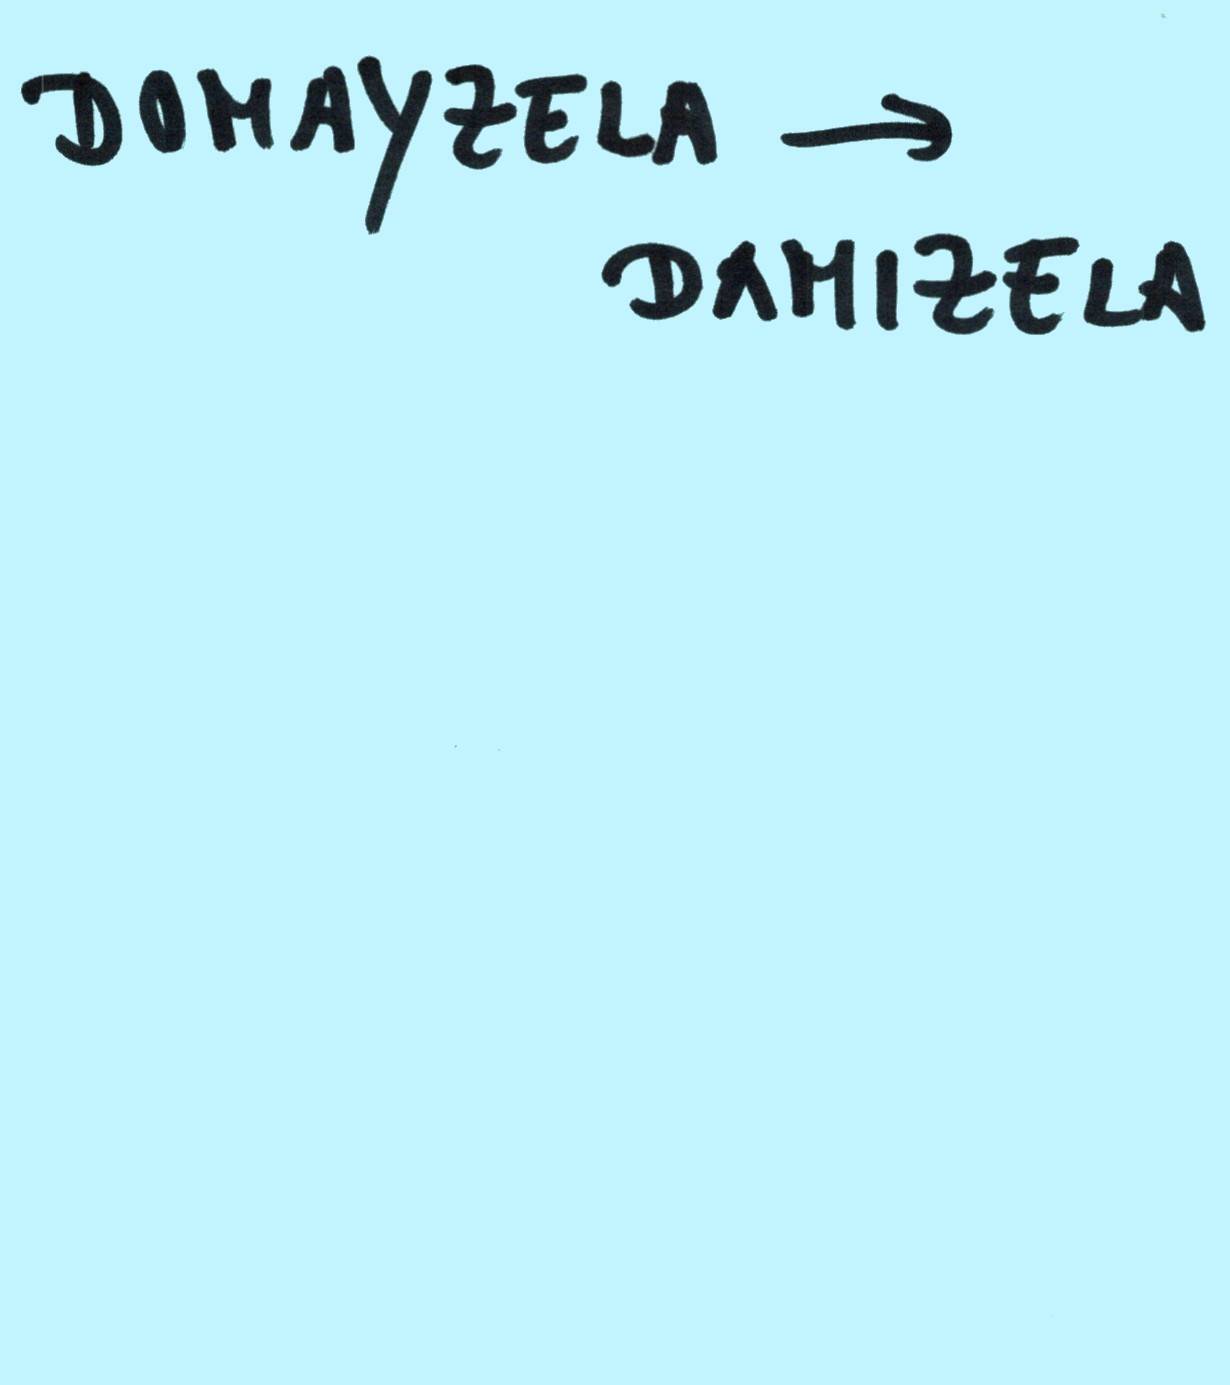 DOMAYZELA →
DAMIZELA